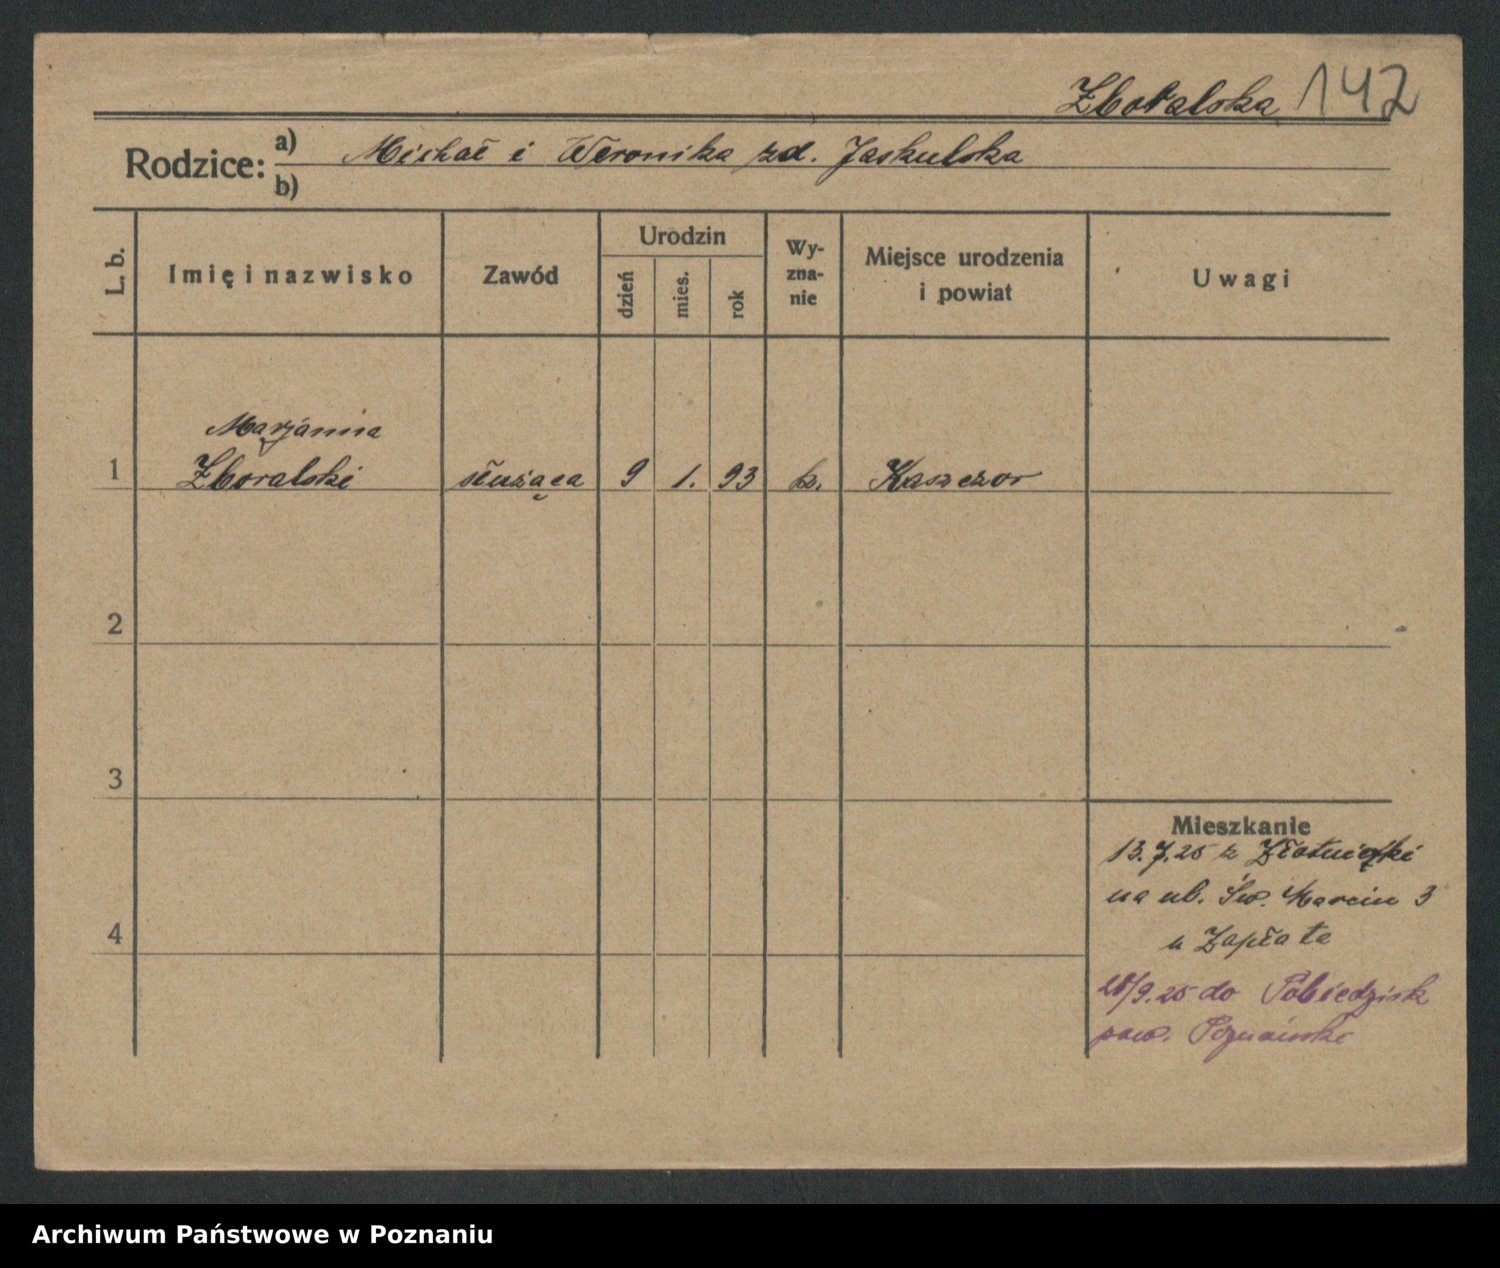 Zboralska 142
Rodzice: a) Michał i Weronika zd. Jaskulska
b)
L. b. Imię i nazwisko Zawód Urodzin dzień mies. rok Wy-zna-nie Miejsce urodzenia i powiat Uwagi
Marjanna
1 Zboralski służąca 9 1. 93 k. Kaszczor
2
3
Mieszkanie
13.7.25 z Złotniczki
na ul. Św. Marcin 3
4
u Zapłata
28/9.25 do Pobiedzisk
pow. Poznański
Archiwum Państwowe w Poznaniu